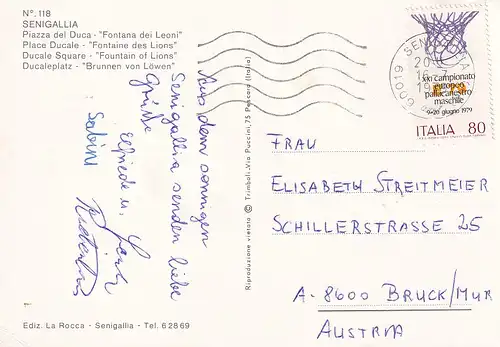 N°. 118
SENIGALLIA
Piazza del Duca - "Fontana dei Leoni"
Place Ducale - "Fontaine des Lions"
Ducale Square - "Fountain of Lions"
Ducaleplatz - "Brunnen von Löwen"
Aus dem sonnigen
Senigallia senden liebe
Grüße
Elfriede u.
Sabine
Riproduzione vietata © Trimboli-Via Puccini, 75 Pescara (Italia)
60019 SENIGALLIA
XXI campionato
europeo
pallacanestro
maschile
9-20 giugno 1979
ITALIA 80
FRAU
ELISABETH STREITMEIER
SCHILLERSTRASSE 25
A-8600 BRUCK/MUR
AUSTRIA
Ediz. La Rocca - Senigallia - Tel. 62869